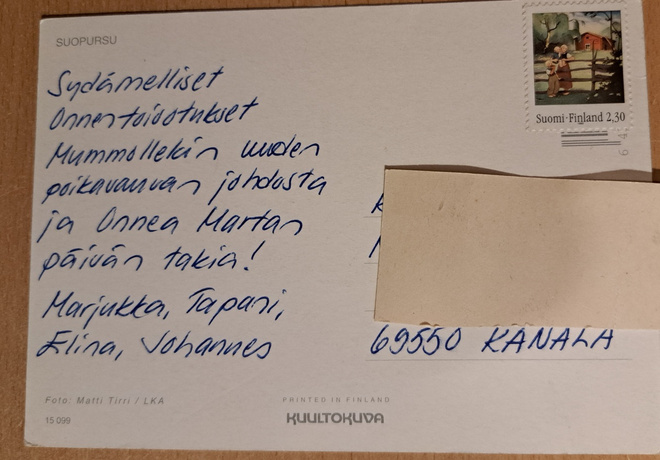 SUOPURSU
Suomi-Finland 2,30
Sydämelliset
Onnentoivotukset
Mummollekin uuden
poikavauvan johdosta
ja Onnea Martan
päivän takia!
Marjukka, Tapani,
Elina, Johannes
69550 KANALA
Foto: Matti Tirri / LKA
15 099
PRINTED IN FINLAND
KUULTOKUVA